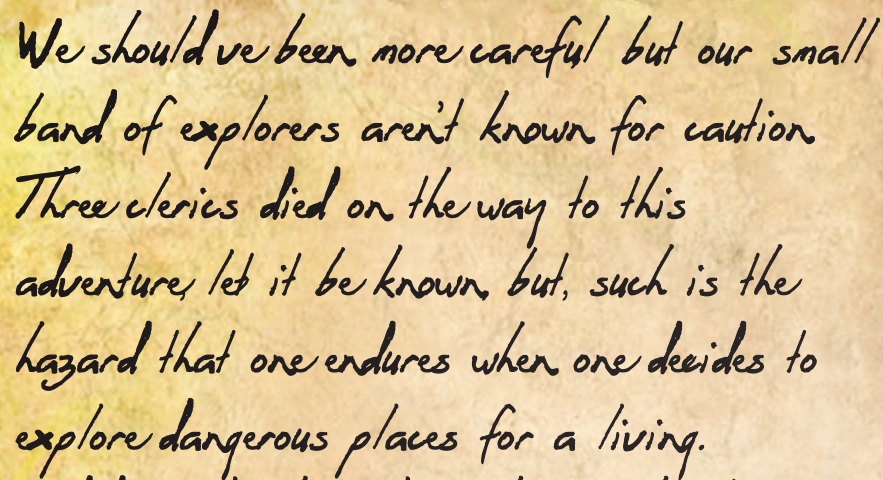 We should ve been more careful but our small
band of explorers aren't known for caution
Three clerics died on the way to this
adventure, let it be known, but, such is the
hazard that one endures when one decides to
explore dangerous places for a living.